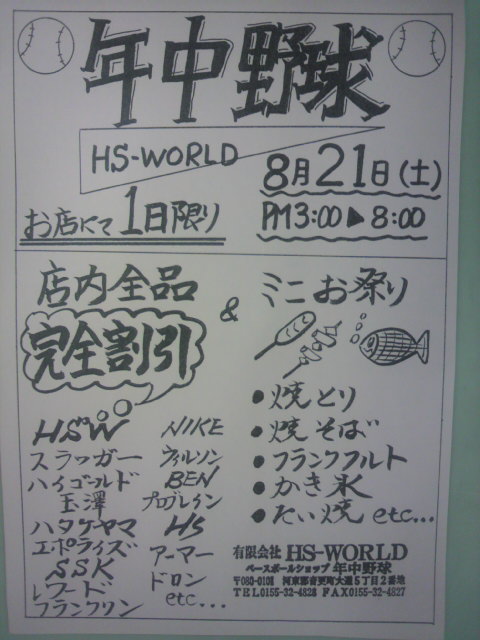 年中野球
HS-WORLD
8月21日(土)
お店にて1日限り
PM3:00▶8:00
店内全品
完全割引
&
ミニお祭り
•焼とり
•焼そば
•フランクフルト
•かき氷
•たい焼 etc...
HSW
スラッガー
ハイゴールド
玉澤
ハタケヤマ
エボライズ
SSK
レワード
フランクリン
NIKE
ウィルソン
BEN
プログレイン
HS
アーマー
ドロン
etc...
有限会社 HS-WORLD
ベースボールショップ 年中野球
〒080-0103 河東郡音更町大通5丁目2番地
TEL0155-32-4828 FAX0155-32-4827